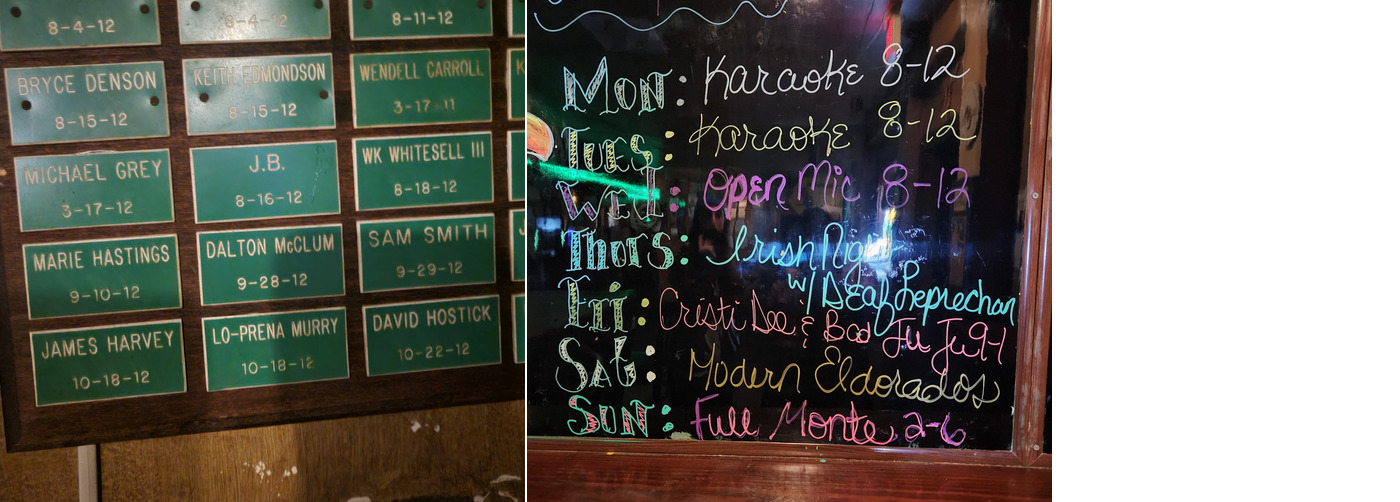 8-4-12
8-4-12
8-11-12
BRYCE DENSON
8-15-12
KEITH EDMONDSON
8-15-12
WENDELL CARROLL
3-17-11
MICHAEL GREY
3-17-12
J.B.
8-16-12
WK WHITESELL III
8-18-12
MARIE HASTINGS
9-10-12
DALTON McCLUM
9-28-12
SAM SMITH
9-29-12
JAMES HARVEY
10-18-12
LO-PRENA MURRY
10-18-12
DAVID HOSTICK
10-22-12
Mon: Karaoke 8-12
Tues: Karaoke 8-12
Wed: Open Mic 8-12
Thurs: Irish Night
w/ Deaf Leprechan
Fri: Cristi Dee & Bad Ju Ju 9-1
Sat: Modern Eldorados
Sun: Full Monte 2-6